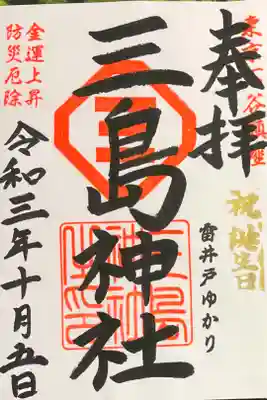 奉拝
祝誕生日
雷井戸ゆかり
三島神社
金運上昇
防災厄除
令和三年十月五日